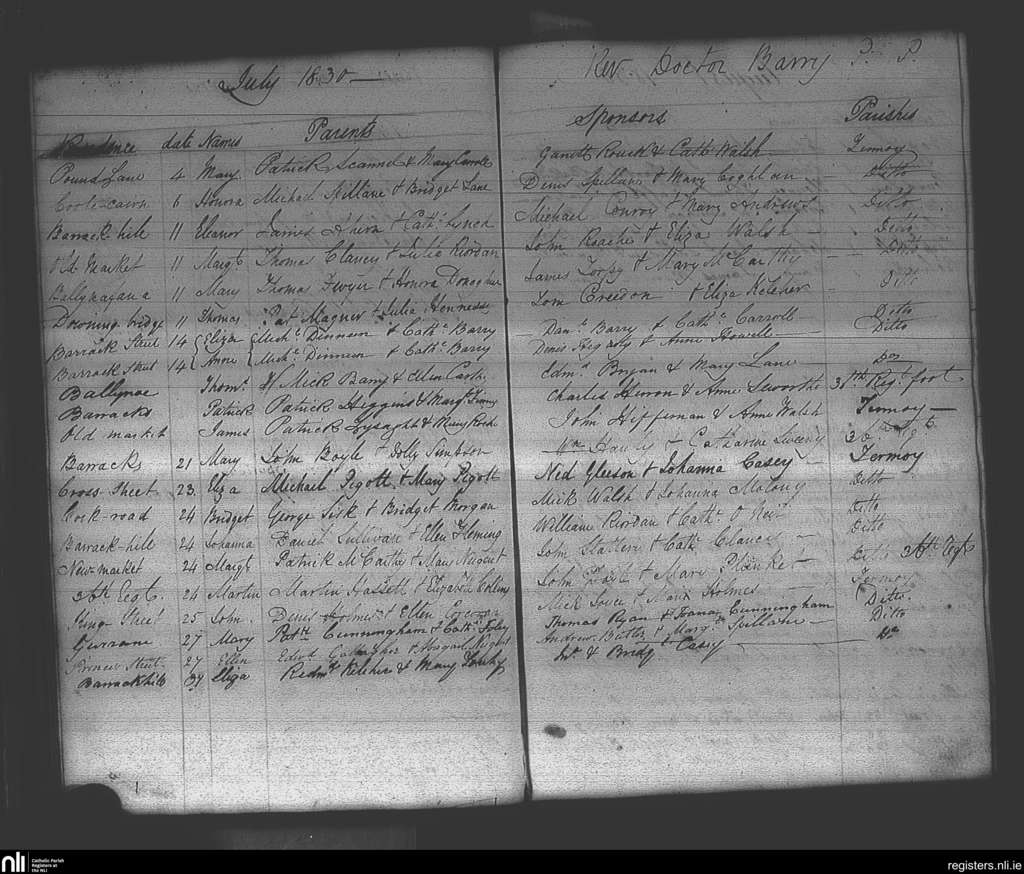 July 1830 Rev. Doctor Barry P. P.
Residence date Names Parents Sponsors Parishes
Pound Lane 4 Mary Patrick Scannel & Mary Garrett Rourk & Cath Walsh Fermoy
Coole-cairn 6 Honora Michael Spillane & Bridget Lane Denis Spillane & Mary Coghlan Ditto
Barrack-hill 11 Eleanor James Ahern & Cath. Lynch Michael Conroy & Mary Andrews Ditto
Old Market 11 Margt Thomas Clancy & Julia Riordan John Roache & Eliza Walsh Ditto
11 Mary Thomas Dwyer & Honora Donoghue James Torpy & Mary McCarthy Ditto
Downing-bridge 11 Thomas Pat Magner & Julia Hennessy Tom Creedon & Eliza Keleher Ditto
Barrack Street 14 Eliza Mich. Dinneen & Cath. Barry Danl. Barry & Cath. Carroll Ditto
Barrack street 14 Anne Mich. Dinneen & Cath. Barry Denis Hegarty & Anne Howell Ditto
Ballynoe Thoms. Mick Barry & Ellen Edmd. & Mary Lane Do
Barracks Patrick Patrick Higgins & Margt. Charles Herron & Anne Regt. foot
Old market James Patrick Lysaght & Mary Roch John Heffernan & Anne Walsh Fermoy
Barracks 21 Mary John Boyle & Dolly Simpson Wm & Catharine Sweeny 36
Cross Street 23. Eliza Michael Pigott & Mary Pigott Ned Gleeson & Johanna Casey Fermoy
Rock-road 24 Bridget George Sisk & Bridget Morgan Mick Walsh & Johanna Molony Ditto
Barrack-hill 24 Johanna Daniel Sullivan & Ellen Fleming William Riordan & Cath. O Ditto
New-market 24 Margt Patrick McCarthy & Mary Nugent John Slattery & Cath. Clancy Ditto
36th Regt. 24 Martin Martin Hassett & Elizabeth Collins John & Mary Plunket Ditto 36th Regt
King Street 25 John. Denis Holmes & Ellen Corcoran Mick Joyce & Maria Holmes Fermoy
Gurrane 27 Mary Patk Cunningham & Cath. Foley Thomas Ryan & Joana Cunningham Ditto
27 Ellen Edwd Gallagher & Abagail Andrew Butler & Margt. Spillane Ditto
Barrackhill Eliza Redmd Keleher & Mary & Bridgt Casey Do
nli Catholic Parish
Registers at
the NLI
registers.nli.ie